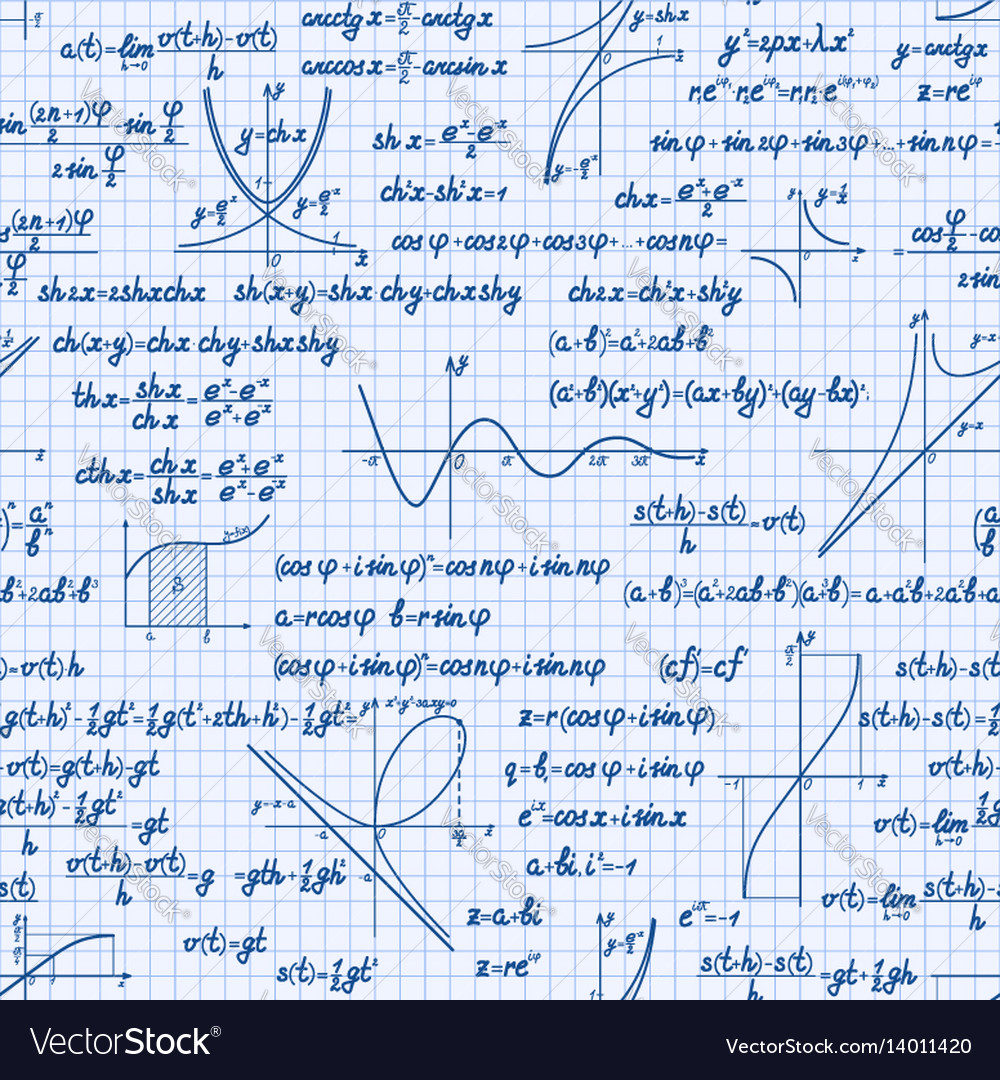 arcctg x = π/2 - arctg x
y = sh x
a(t) = lim h→0 (v(t+h) - v(t))/h
y² = 2px + λx²
y = arctg x
arccos x = π/2 - arcsin x
r₁e^(iφ₁) · r₂e^(iφ₂) = r₁r₂e^(i(φ₁+φ₂))
z = re^(iφ)
sin (2n+1)φ/2 - sin φ/2
2 sin φ/2
y = ch x
sh x = (eˣ - e⁻ˣ)/2
sin φ + sin 2φ + sin 3φ + ... + sin nφ =
y = -e⁻ˣ/2
ch²x - sh²x = 1
ch x = (eˣ + e⁻ˣ)/2
y = 1/x
y = eˣ/2
y = e⁻ˣ/2
(2n+1)φ/2
cos φ + cos 2φ + cos 3φ + ... + cos nφ =
= cos φ/2 - co
φ/2
2 sin
sh 2x = 2sh x ch x
sh(x+y) = sh x · ch y + ch x sh y
ch 2x = ch²x + sh²y
ch(x+y) = ch x · ch y + sh x sh y
(a+b)² = a² + 2ab + b²
th x = sh x/ch x = (eˣ - e⁻ˣ)/(eˣ + e⁻ˣ)
(a²+b²)(x²+y²) = (ax+by)² + (ay-bx)²;
y = x
-π 0 π 2π 3π x
cth x = ch x/sh x = (eˣ + e⁻ˣ)/(eˣ - e⁻ˣ)
)ⁿ = aⁿ/bⁿ
(s(t+h) - s(t))/h ≈ v(t)
y = f(x)
S
a b
(cos φ + i sin φ)ⁿ = cos nφ + i sin nφ
b² + 2ab² + b³
(a+b)³ = (a² + 2ab + b²)(a³b) = a + a²b + 2a²b + a
a = r cos φ b = r sin φ
) ≈ v(t)·h
(cos φ + i sin φ)ⁿ = cos nφ + i sin nφ
(cf)' = cf'
s(t+h) - s(t
g(t+h)² - 1/2 gt² = 1/2 g(t² + 2th + h²) - 1/2 gt² =
x³ + y³ - 3axy = 0
z = r(cos φ + i sin φ)
s(t+h) - s(t) = 1/2
-v(t) = g(t+h) - gt
q = b, = cos φ + i sin φ
-1 0 1 x
v(t+h)-
y = -x-a
(t+h)² - 1/2 gt²
h
= gt
-a 0 3a/2 x
e^(ix) = cos x + i sin x
v(t) = lim h→0
(v(t+h) - v(t))/h = g
= gth + 1/2 gh²
-a
a + bi, i² = -1
s(t)
v(t) = lim h→0 (s(t+h) - s
h
z = a + bi
e^(iπ) = -1
v(t) = gt
y = eˣ/2
s(t) = 1/2 gt²
z = re^(iφ)
(s(t+h) - s(t))/h = gt + 1/2 gh
VectorStock®
VectorStock.com/14011420